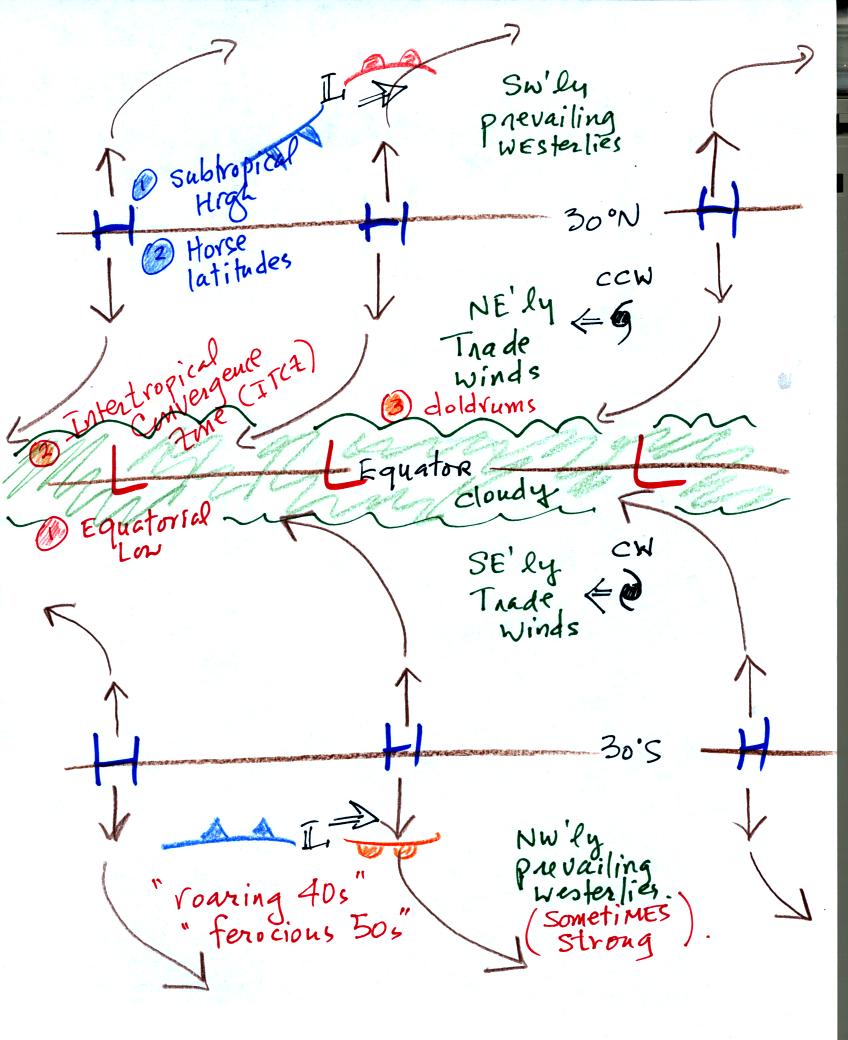 L
Sw'ly
prevailing
westerlies
1 Subtropical
High
H
H
30°N
H
2 Horse
latitudes
CCW
NE'ly
Trade
winds
2 Intertropical
Convergence
Zone (ITCZ)
3 doldrums
L
L
Equator
L
cloudy
1 Equatorial
Low
CW
SE'ly
Trade
Winds
H
H
30°S
H
L
NW'ly
prevailing
westerlies.
(sometimes
strong).
"roaring 40s"
"ferocious 50s"